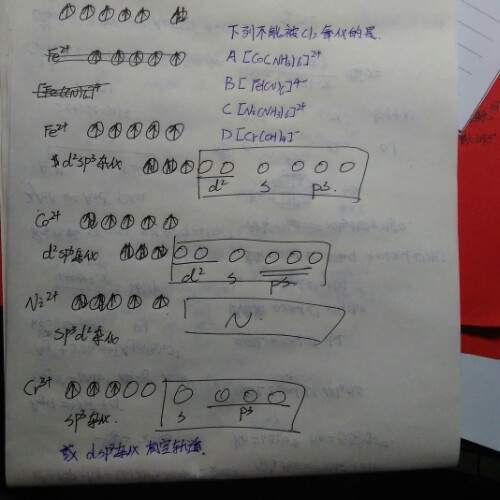 下列不能被Cl₂氧化的是
A [Co(NH₃)₆]²⁺
B [Fe(CN)₆]⁴⁻
C [Ni(NH₃)₆]²⁺
D [Cr(OH)₄]⁻
Fe²⁺
Fe²⁺
d²sp³杂化
d² s p³
Co²⁺
d²sp³杂化
d² s p³
Ni²⁺
N
sp³d²杂化
Cr³⁺
sp³杂化
s p³
或 dsp²杂化